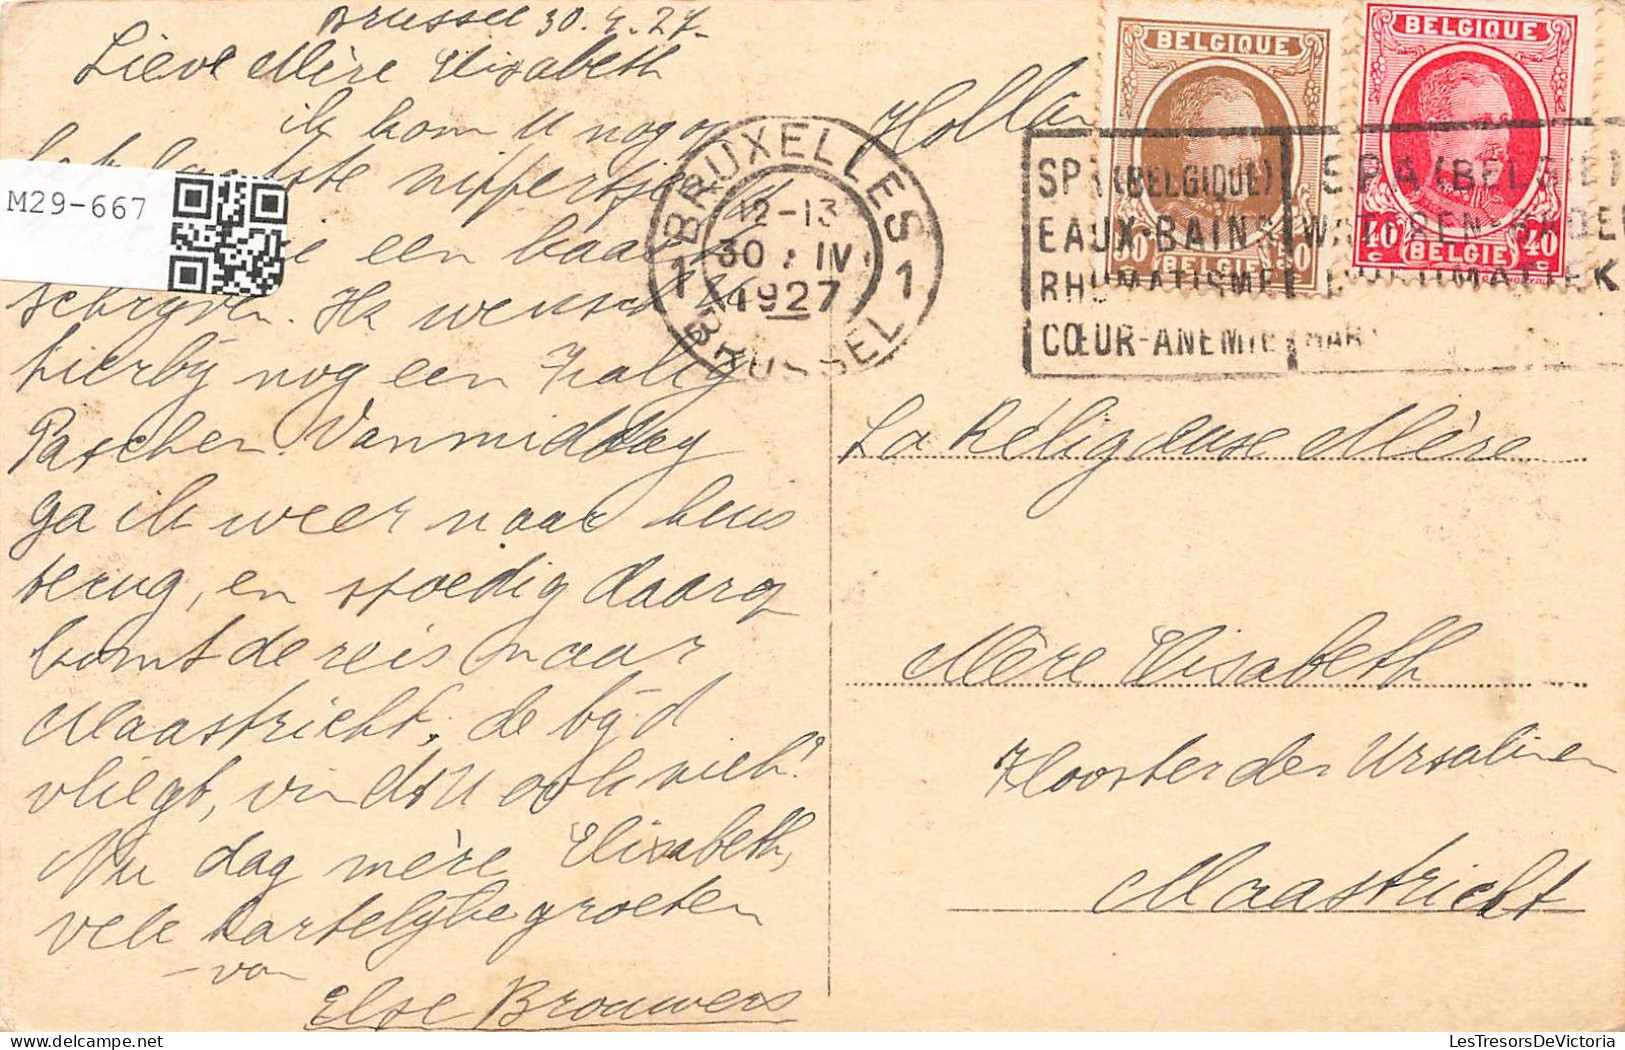 Brussel 30.4.27-
Lieve Mère Elisabeth
ik kom U nog op
het laatste nippertje
M29-667
een kaart
schrijven. Ik wensch U
hierbij nog een Zalig
Paschen. Vanmiddag
ga ik weer naar huis
terug, en spoedig daarop
komt de reis naar
Maastricht, de tijd
vliegt, vindt U ook niet?
Nu dag mère Elisabeth,
vele hartelijke groeten
- van
Else Brouwers
Holla
BELGIQUE
30
BELGIE
BELGIQUE
40 40
c c
BELGIE
1 BRUXELLES 1
12-13
30 IV
1927
BRUSSEL
SPA (BELGIQUE)
EAUX-BAINS
RHUMATISME
CŒUR-ANEMIE
SPA (BELGIE)
WATEREN-BADEN
RHEUMATIEK
HART
La Religieuse Mère
Mère Elisabeth
Klooster der Ursulinen
Maastricht
LesTresorsDeVictoria